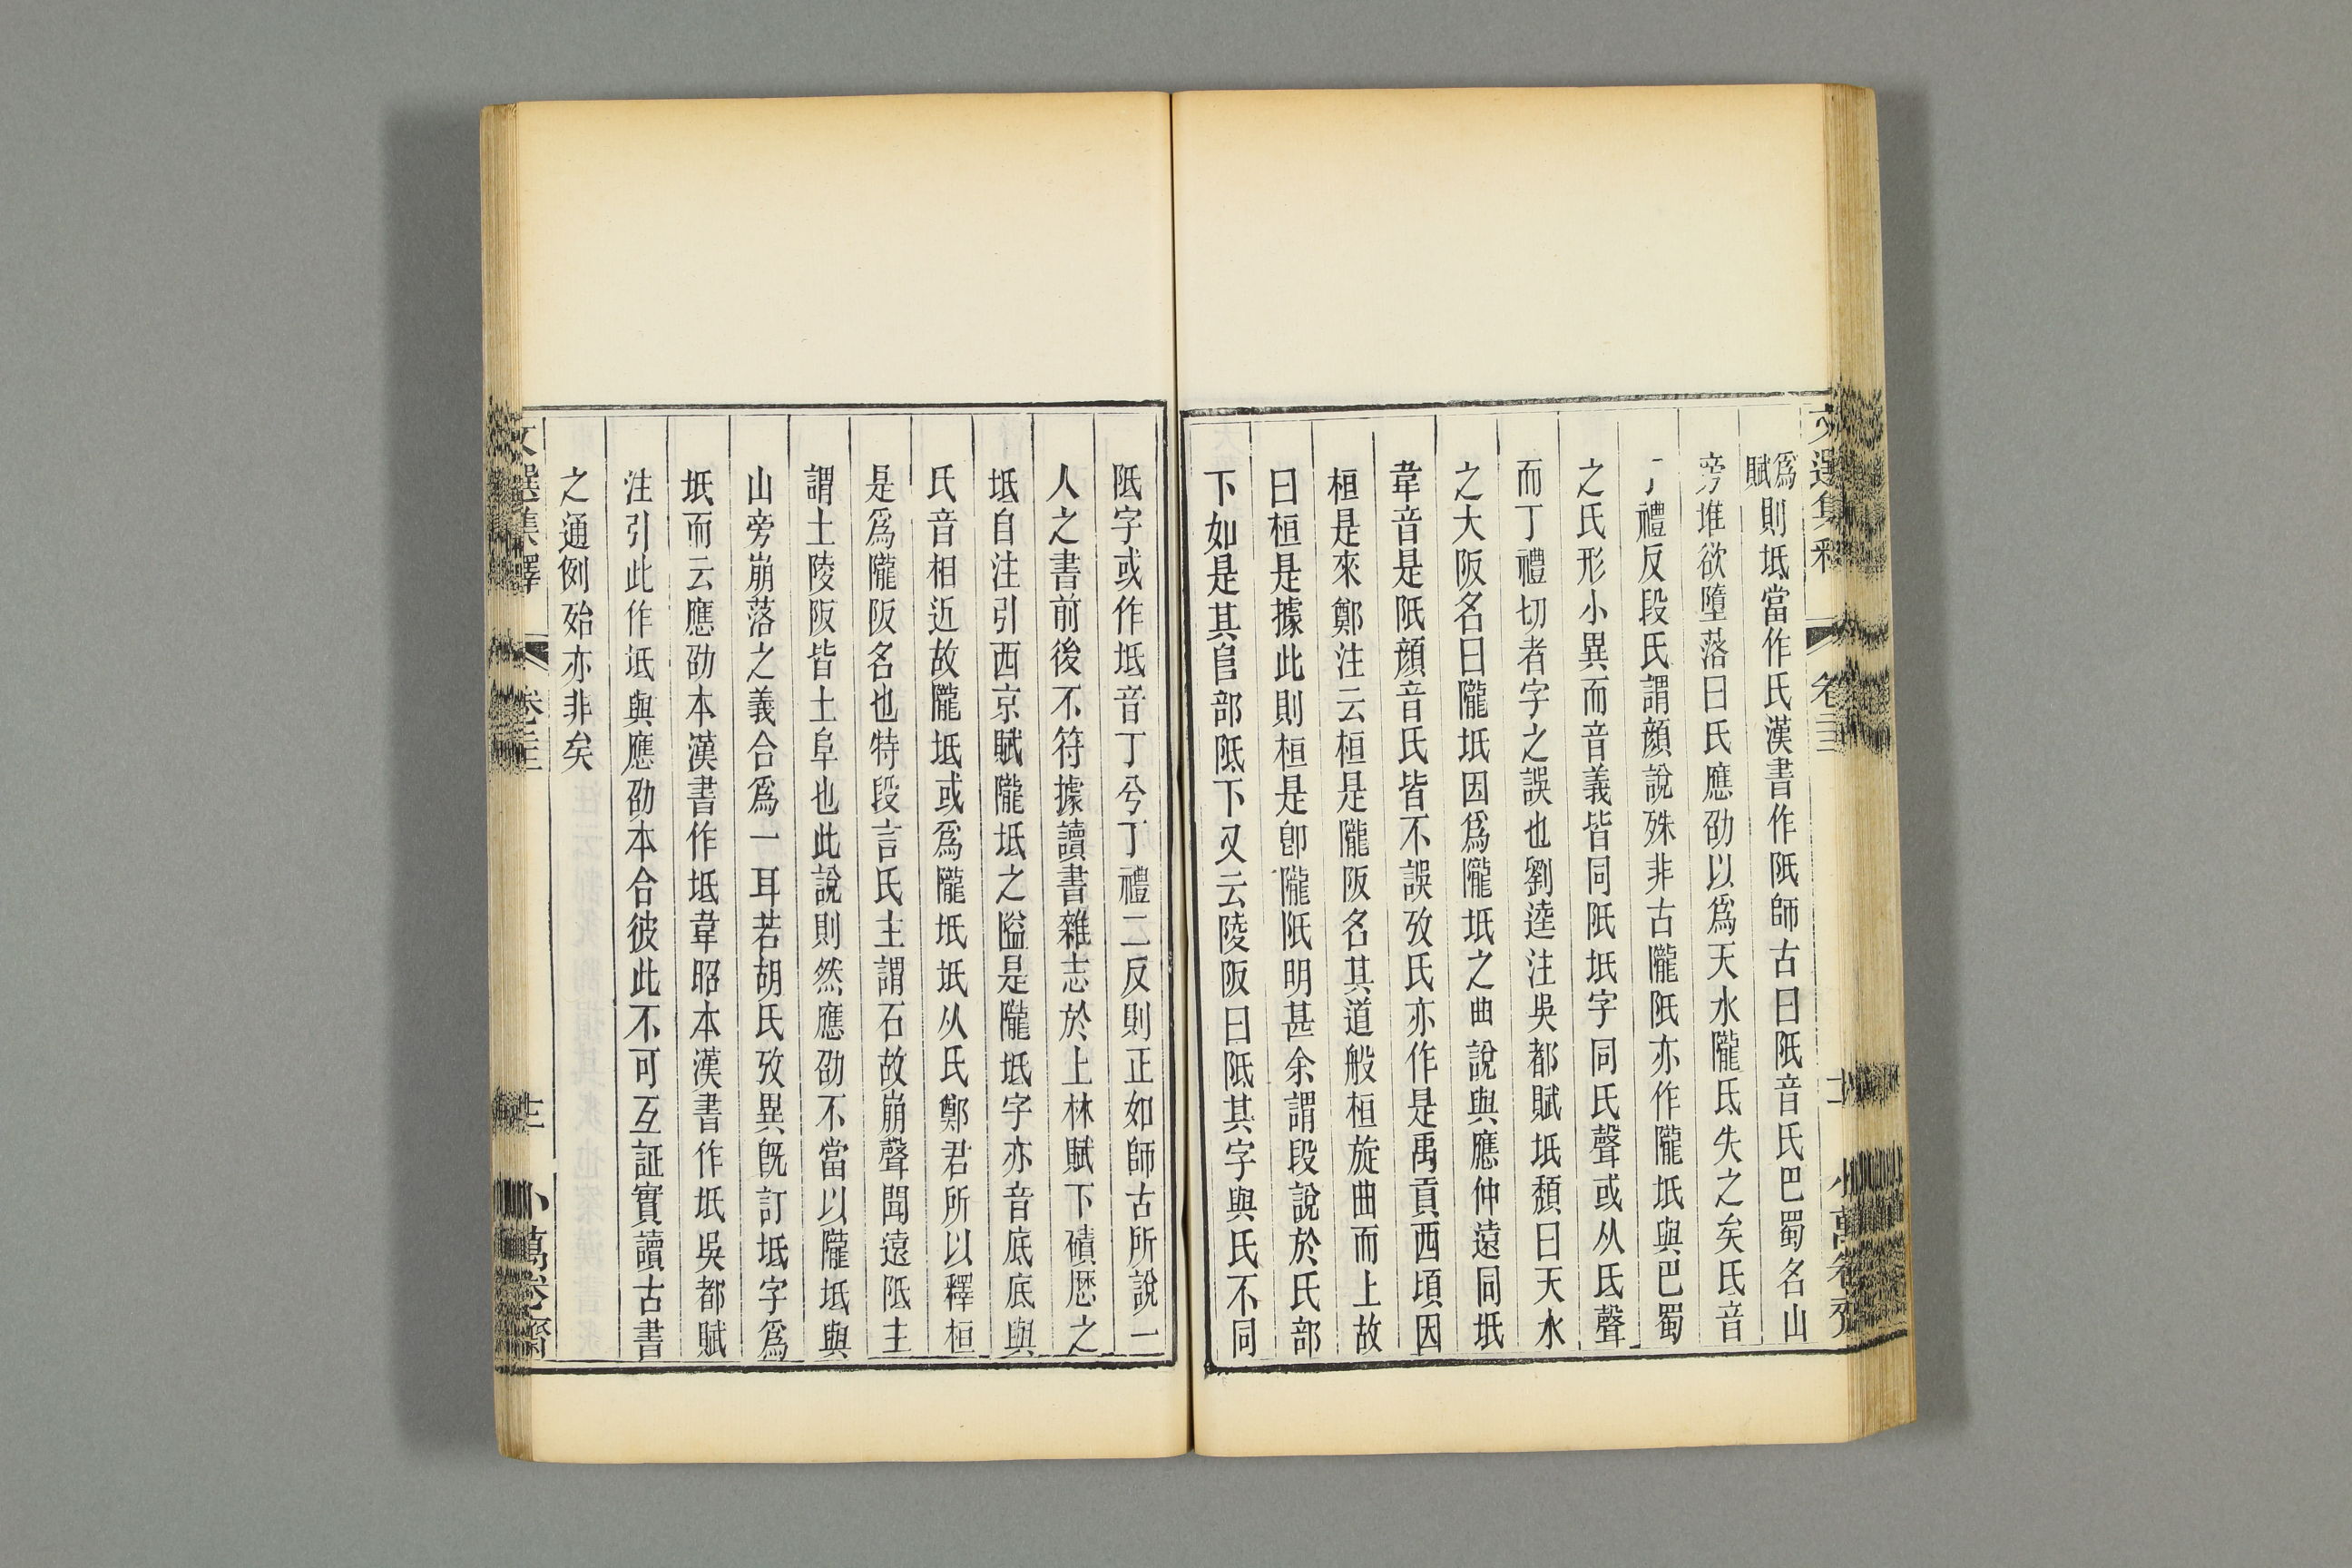 爲賦則坻當作氏漢書作阺師古曰阺音氏巴蜀名山
旁堆欲墮落曰氏應劭以爲天水隴氐失之矣氏音
丁禮反段氏謂顏說殊非古隴阺亦作隴坻與巴蜀
之氏形小異而音義皆同阺坻字同氏聲或从氐聲
而丁禮切者字之誤也劉逵注吳都賦坻頹曰天水
之大阪名曰隴坻因爲隴坻之曲說與應仲遠同坻
韋音是阺顏音氏皆不誤攷氏亦作是禹貢西頃因
桓是來鄭注云桓是隴阪名其道般桓旋曲而上故
曰桓是據此則桓是卽隴阺明甚余謂段說於氏部
下如是其𨸏部阺下又云陵阪曰阺其字與氏不同
阺字或作坻音丁兮丁禮二反則正如師古所說一
人之書前後不符據讀書雜志於上林賦下磧歷之
坻自注引西京賦隴坻之隘是隴坻字亦音底底與
氏音相近故隴坻或爲隴坻坻从氏鄭君所以釋桓
是爲隴阪名也特段言氏主謂石故崩聲聞遠阺主
謂土陵阪皆土阜也此說則然應劭不當以隴坻與
山旁崩落之義合爲一耳若胡氏攷異既訂坻字爲
坻而云應劭本漢書作坻韋昭本漢書作坻吳都賦
注引此作坻與應劭本合彼此不可互証實讀古書
之通例殆亦非矣
文選集釋 卷二三 十二 小萬卷齋